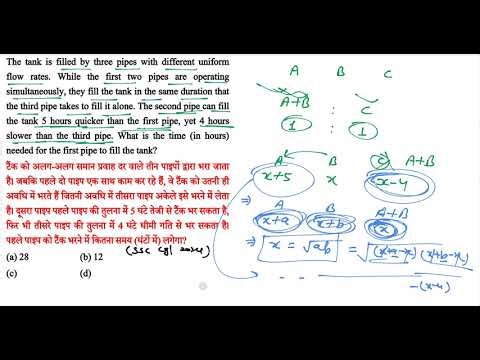 The tank is filled by three pipes with different uniform
flow rates. While the first two pipes are operating
simultaneously, they fill the tank in the same duration that
the third pipe takes to fill it alone. The second pipe can fill
the tank 5 hours quicker than the first pipe, yet 4 hours
slower than the third pipe. What is the time (in hours)
needed for the first pipe to fill the tank?
टैंक को अलग-अलग समान प्रवाह दर वाले तीन पाइपों द्वारा भरा जाता
है। जबकि पहले दो पाइप एक साथ काम कर रहे हैं, वे टैंक को उतनी ही
अवधि में भरते हैं जितनी अवधि में तीसरा पाइप अकेले इसे भरने में लेता
है। दूसरा पाइप पहले पाइप की तुलना में 5 घंटे तेजी से टैंक भर सकता है,
फिर भी तीसरे पाइप की तुलना में 4 घंटे धीमी गति से भर सकता है।
पहले पाइप को टैंक भरने में कितना समय (घंटों में) लगेगा?
(SSC Cgl 2024)
(a) 28 (b) 12
(c) (d)
A B C
A+B : C
1 : 1
A B C A+B
x+5 x x-4
A B A+B
x+a x+b x
⇒ x = √ab = √(x+a-x)(x+b-x)
-(x-4)